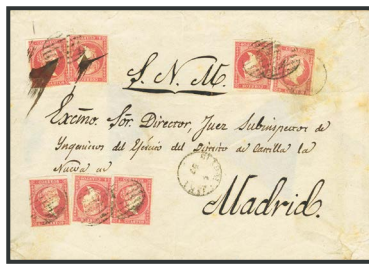 S. N. M.
Excmo. Sor. Director, Juez Subinspector de
Ingenieros del Ejército del Distrito de Castilla la
Nueva
Madrid.